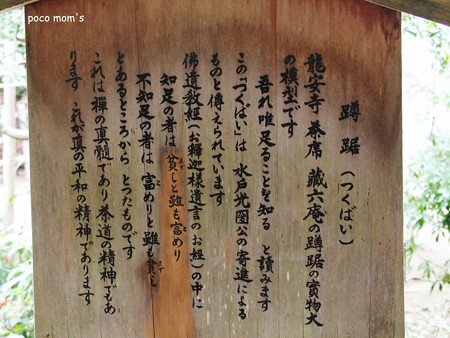 poco mom's
蹲踞（つくばい）
龍安寺 茶席 蔵六庵の蹲踞の實物大
の模型です
吾れ唯足ることを知る と讀みます
この「つくばい」は 水戸光圀公の寄進による
ものと傳えられています
佛遺教経（お釋迦様遺言のお経）の中に
知足の者は 貧しと雖も富めり
不知足の者は 富めりと雖も貧し
とあるところから とつたものです
これは禪の真髄であり茶道の精神でもあ
ります これが真の平和の精神であります